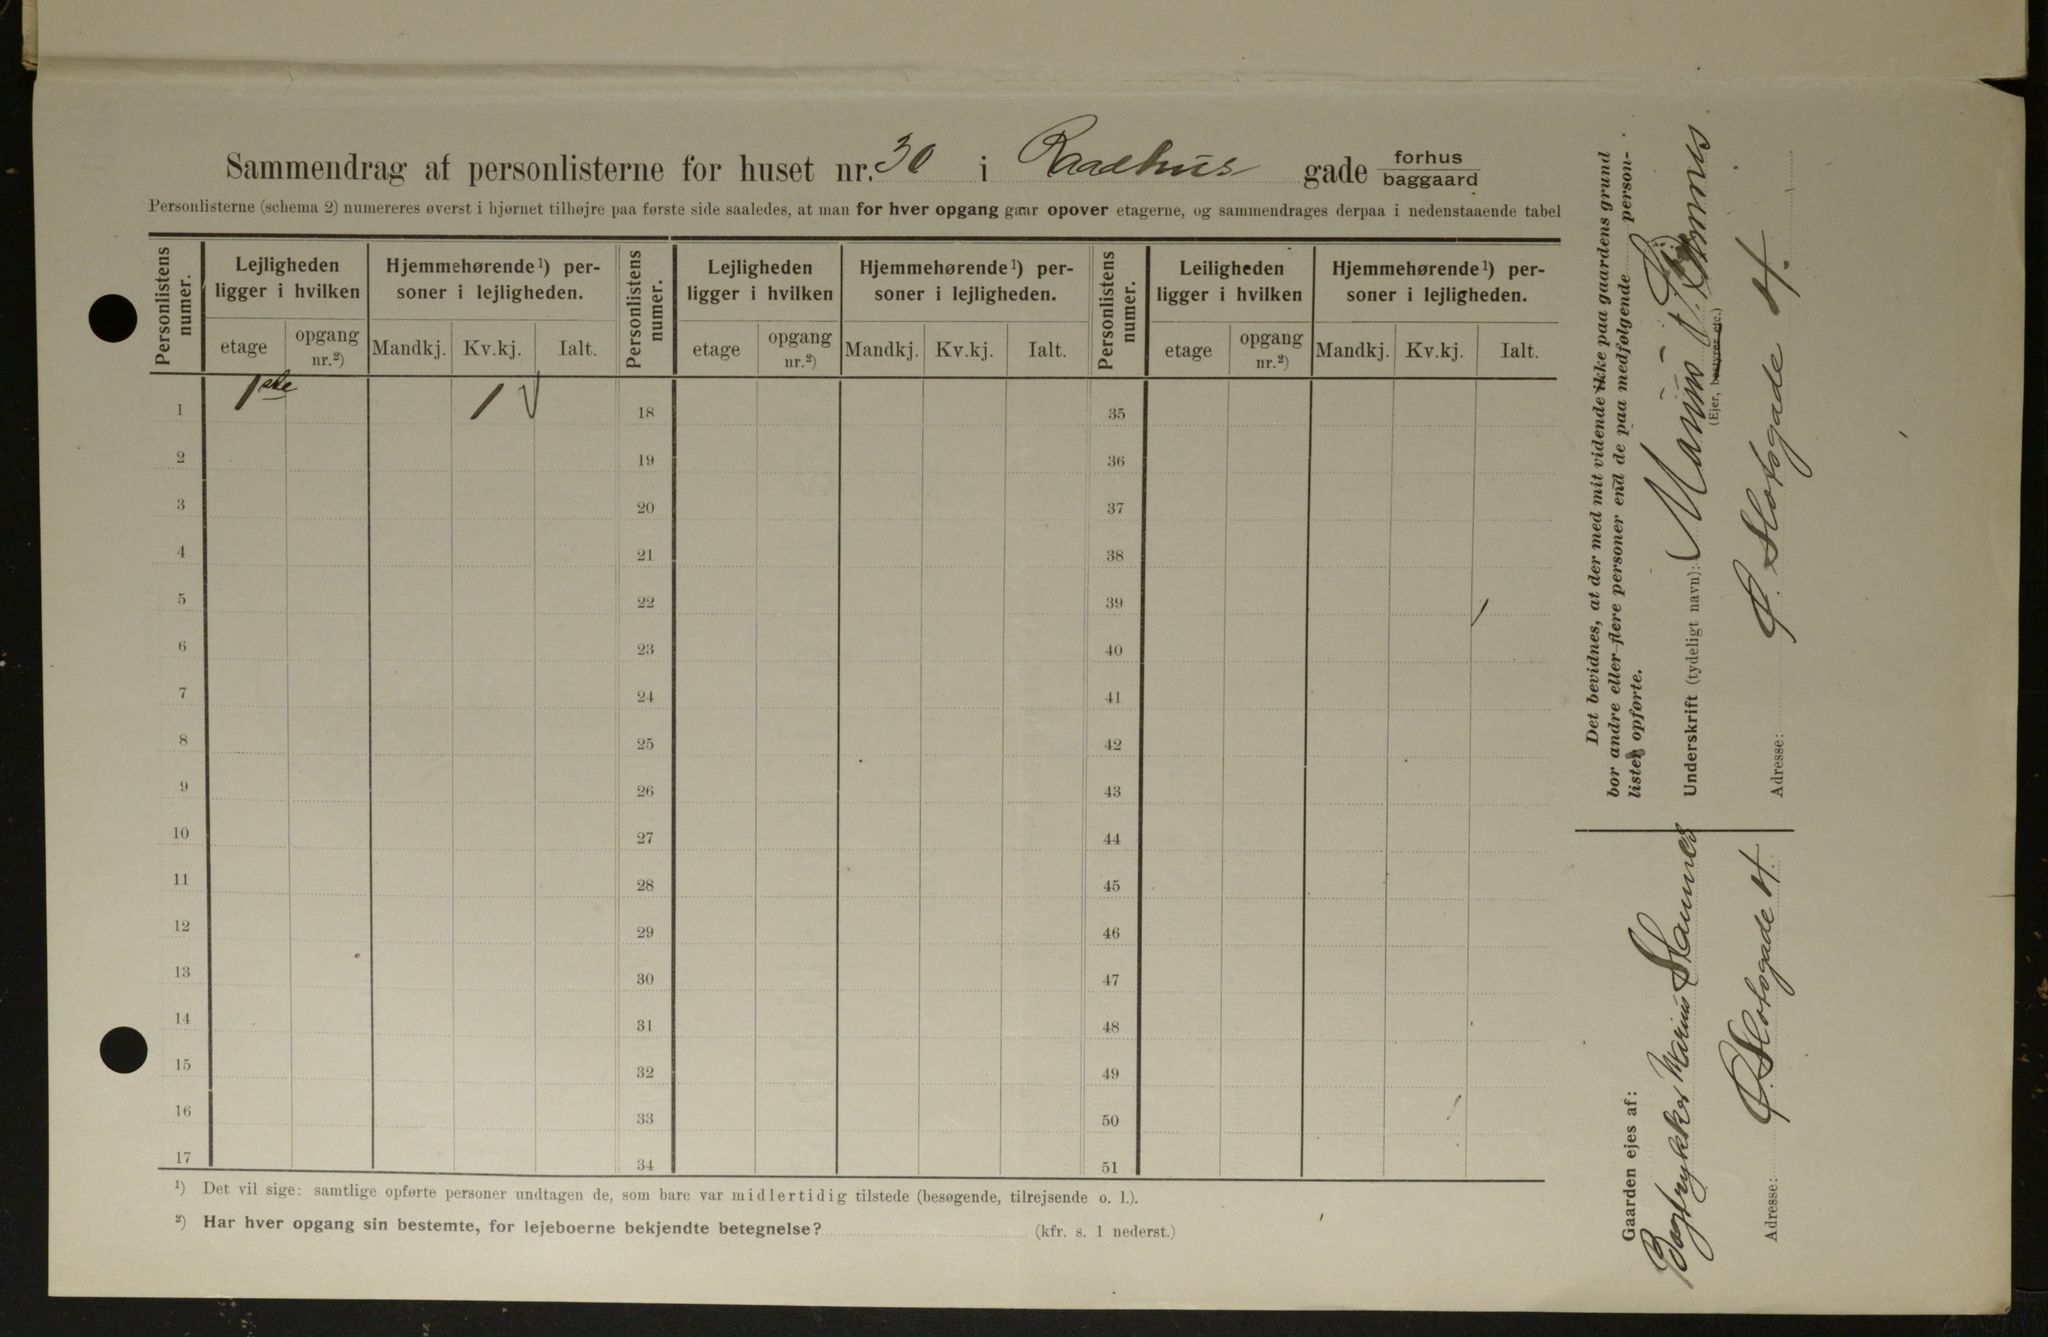 Sammendrag af personlisterne for huset nr. 30 i Raadhus gade forhus baggaard
Personlisterne (schema 2) numereres øverst i hjørnet tilhøjre paa første side saaledes, at man for hver opgang gaar opover etagerne, og sammendrages derpaa i nedenstaaende tabel
Personlistens numer.
Lejligheden ligger i hvilken
etage
opgang nr.²)
Hjemmehørende¹) personer i lejligheden.
Mandkj.
Kv.kj.
Ialt.
Personlistens numer.
Lejligheden ligger i hvilken
etage
opgang nr.²)
Hjemmehørende¹) personer i lejligheden.
Mandkj.
Kv.kj.
Ialt.
Personlistens numer.
Leiligheden ligger i hvilken
etage
opgang nr.²)
Hjemmehørende¹) personer i lejligheden.
Mandkj.
Kv.kj.
Ialt.
1 1ste 1 18 35
2 19 36
3 20 37
4 21 38
5 22 39
6 23 40
7 24 41
8 25 42
9 26 43
10 27 44
11 28 45
12 29 46
13 30 47
14 31 48
15 32 49
16 33 50
17 34 51
¹) Det vil sige: samtlige opførte personer undtagen de, som bare var midlertidig tilstede (besøgende, tilrejsende o. l.).
²) Har hver opgang sin bestemte, for lejeboerne bekjendte betegnelse?
(kfr. s. 1 nederst.)
Det bevidnes, at der med mit vidende ikke paa gaardens grund
bor andre eller flere personer end de paa medfølgende person-
lister opførte.
Underskrift (tydeligt navn): Marius
(Ejer, bestyrer etc.)
Adresse: Ø. Slotsgade 4.
Gaarden ejes af:
Bogtrykker Marius Stamnes
Adresse: Ø. Slotsgade 4.